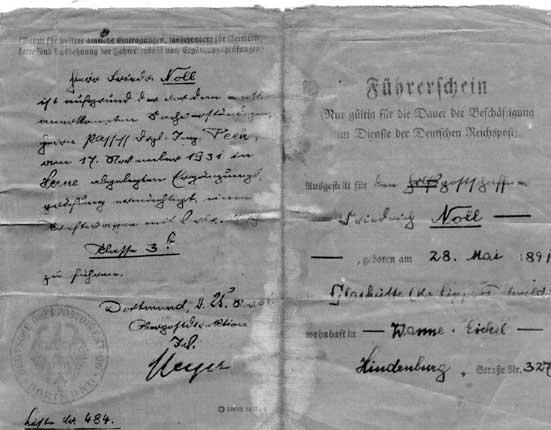 (Raum für weitere amtliche Eintragungen, insbesondere für Vermerke,
betreffend Ausdehnung der Fahrerlaubnis nach Ergänzungsprüfungen)
Herr Friedr. Noll
ist aufgrund der vor dem amtl.
anerkannten Sachverständigen,
Herrn Dipl. Ing.
am 17. November 1931 in
Herne abgelegten Ergänzungs-
prüfung ermächtigt, einen
Kraftwagen mit
Klasse 3
zu führen.
Dortmund, d. 25.
Oberpostdirektion
Meyer
DEUTSCHE OBERPOSTDIREKTION
DORTMUND
Liste Nr. 484.
Führerschein
(Nur gültig für die Dauer der Beschäftigung
im Dienste der Deutschen Reichspost)
Ausgestellt für den Postschaffner
Friedrich Noll
geboren am 28. Mai 1891
Glashütte
wohnhaft in Wanne-Eickel
Hindenburg Straße Nr. 327